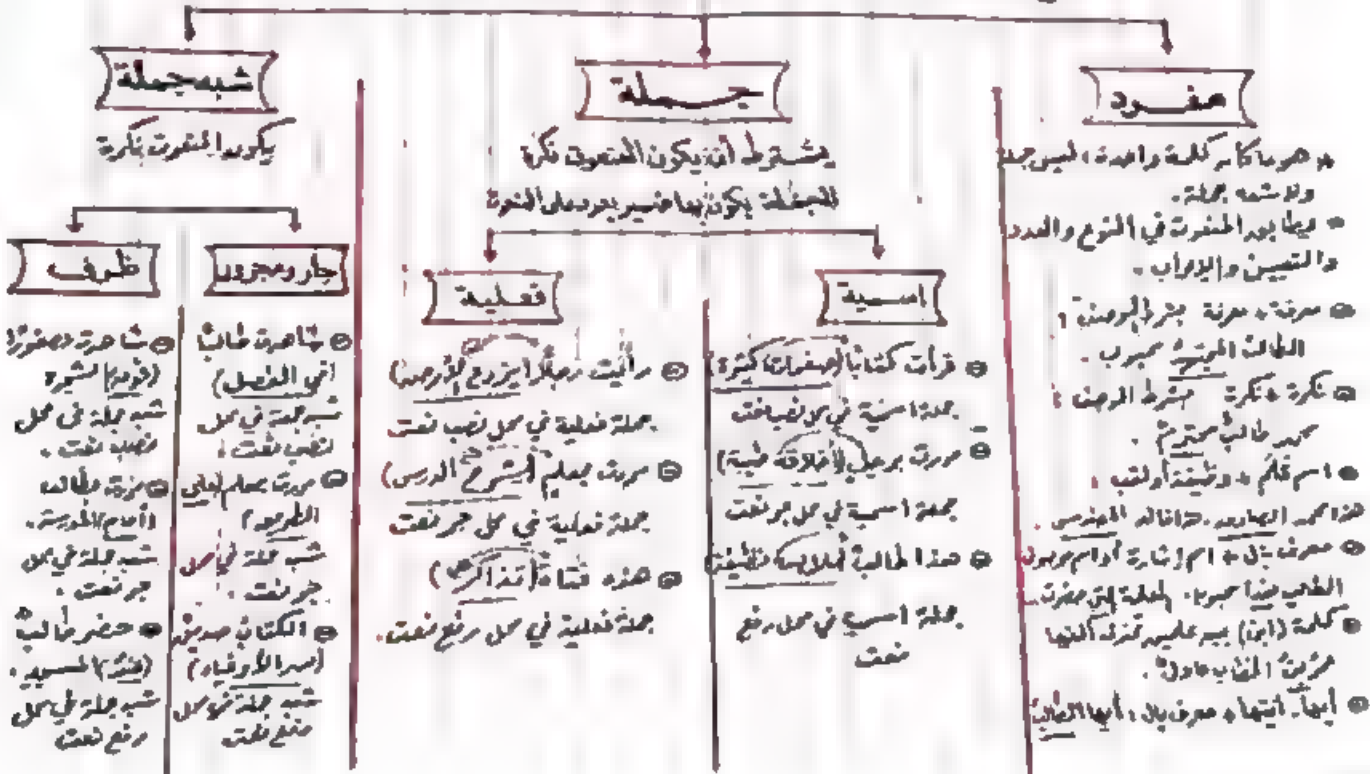 مفرد
هو ما كان كلمة واحدة، ليس جملة
ولا شبه جملة.
المنعوت في النوع والعدد
والتعيين والإعراب.
معرفة + معرفة بشرط الوصف:
الطالب محبوب.
نكرة + نكرة بشرط الوصف:
محمد طالبٌ محترمٌ.
اسم علم + وظيفة أو لقب.
هذا محمد المهندس.
معرف بأل + اسم إشارة أو اسم موصول
الطالب هذا
كلمة (ابن) بين علمين تحذف ألفها
بن الخطاب عادلٌ.
أيها - أيتها + معرف بأل: أيها الطالبُ
جملة
يشترط أن يكون المنعوت نكرة
الجملة يكون بها ضمير يعود على المنعوت
اسمية
قرأت كتاباً (صفحاته كثيرة)
جملة اسمية في محل نصب نعت
مررت برجلٍ (أخلاقه طيبة)
جملة اسمية في محل جر نعت
هذا طالبٌ (ملابسه نظيفة)
جملة اسمية في محل رفع
نعت
فعلية
رأيت رجلًا (يزرع الأرض)
جملة فعلية في محل نصب نعت
مررت بمعلمٍ (يشرح الدرس)
جملة فعلية في محل جر نعت
هذه فتاةٌ (تذاكر)
جملة فعلية في محل رفع نعت.
شبه جملة
يكون المنعوت نكرة
جار ومجرور
شاهدت طالباً
(في الفصل)
شبه جملة في محل
نصب نعت.
مررت بمعلم (على
شبه جملة في محل
جر نعت.
الكتاب صديق
شبه جملة في محل
رفع نعت
ظرف
شاهدت عصفورًا
(فوق) الشجرة
شبه جملة في محل
نصب نعت.
مررت بطالب
(أمام) المدرسة.
شبه جملة في محل
جر نعت.
حضر طالبٌ
شبه جملة في محل
رفع نعت